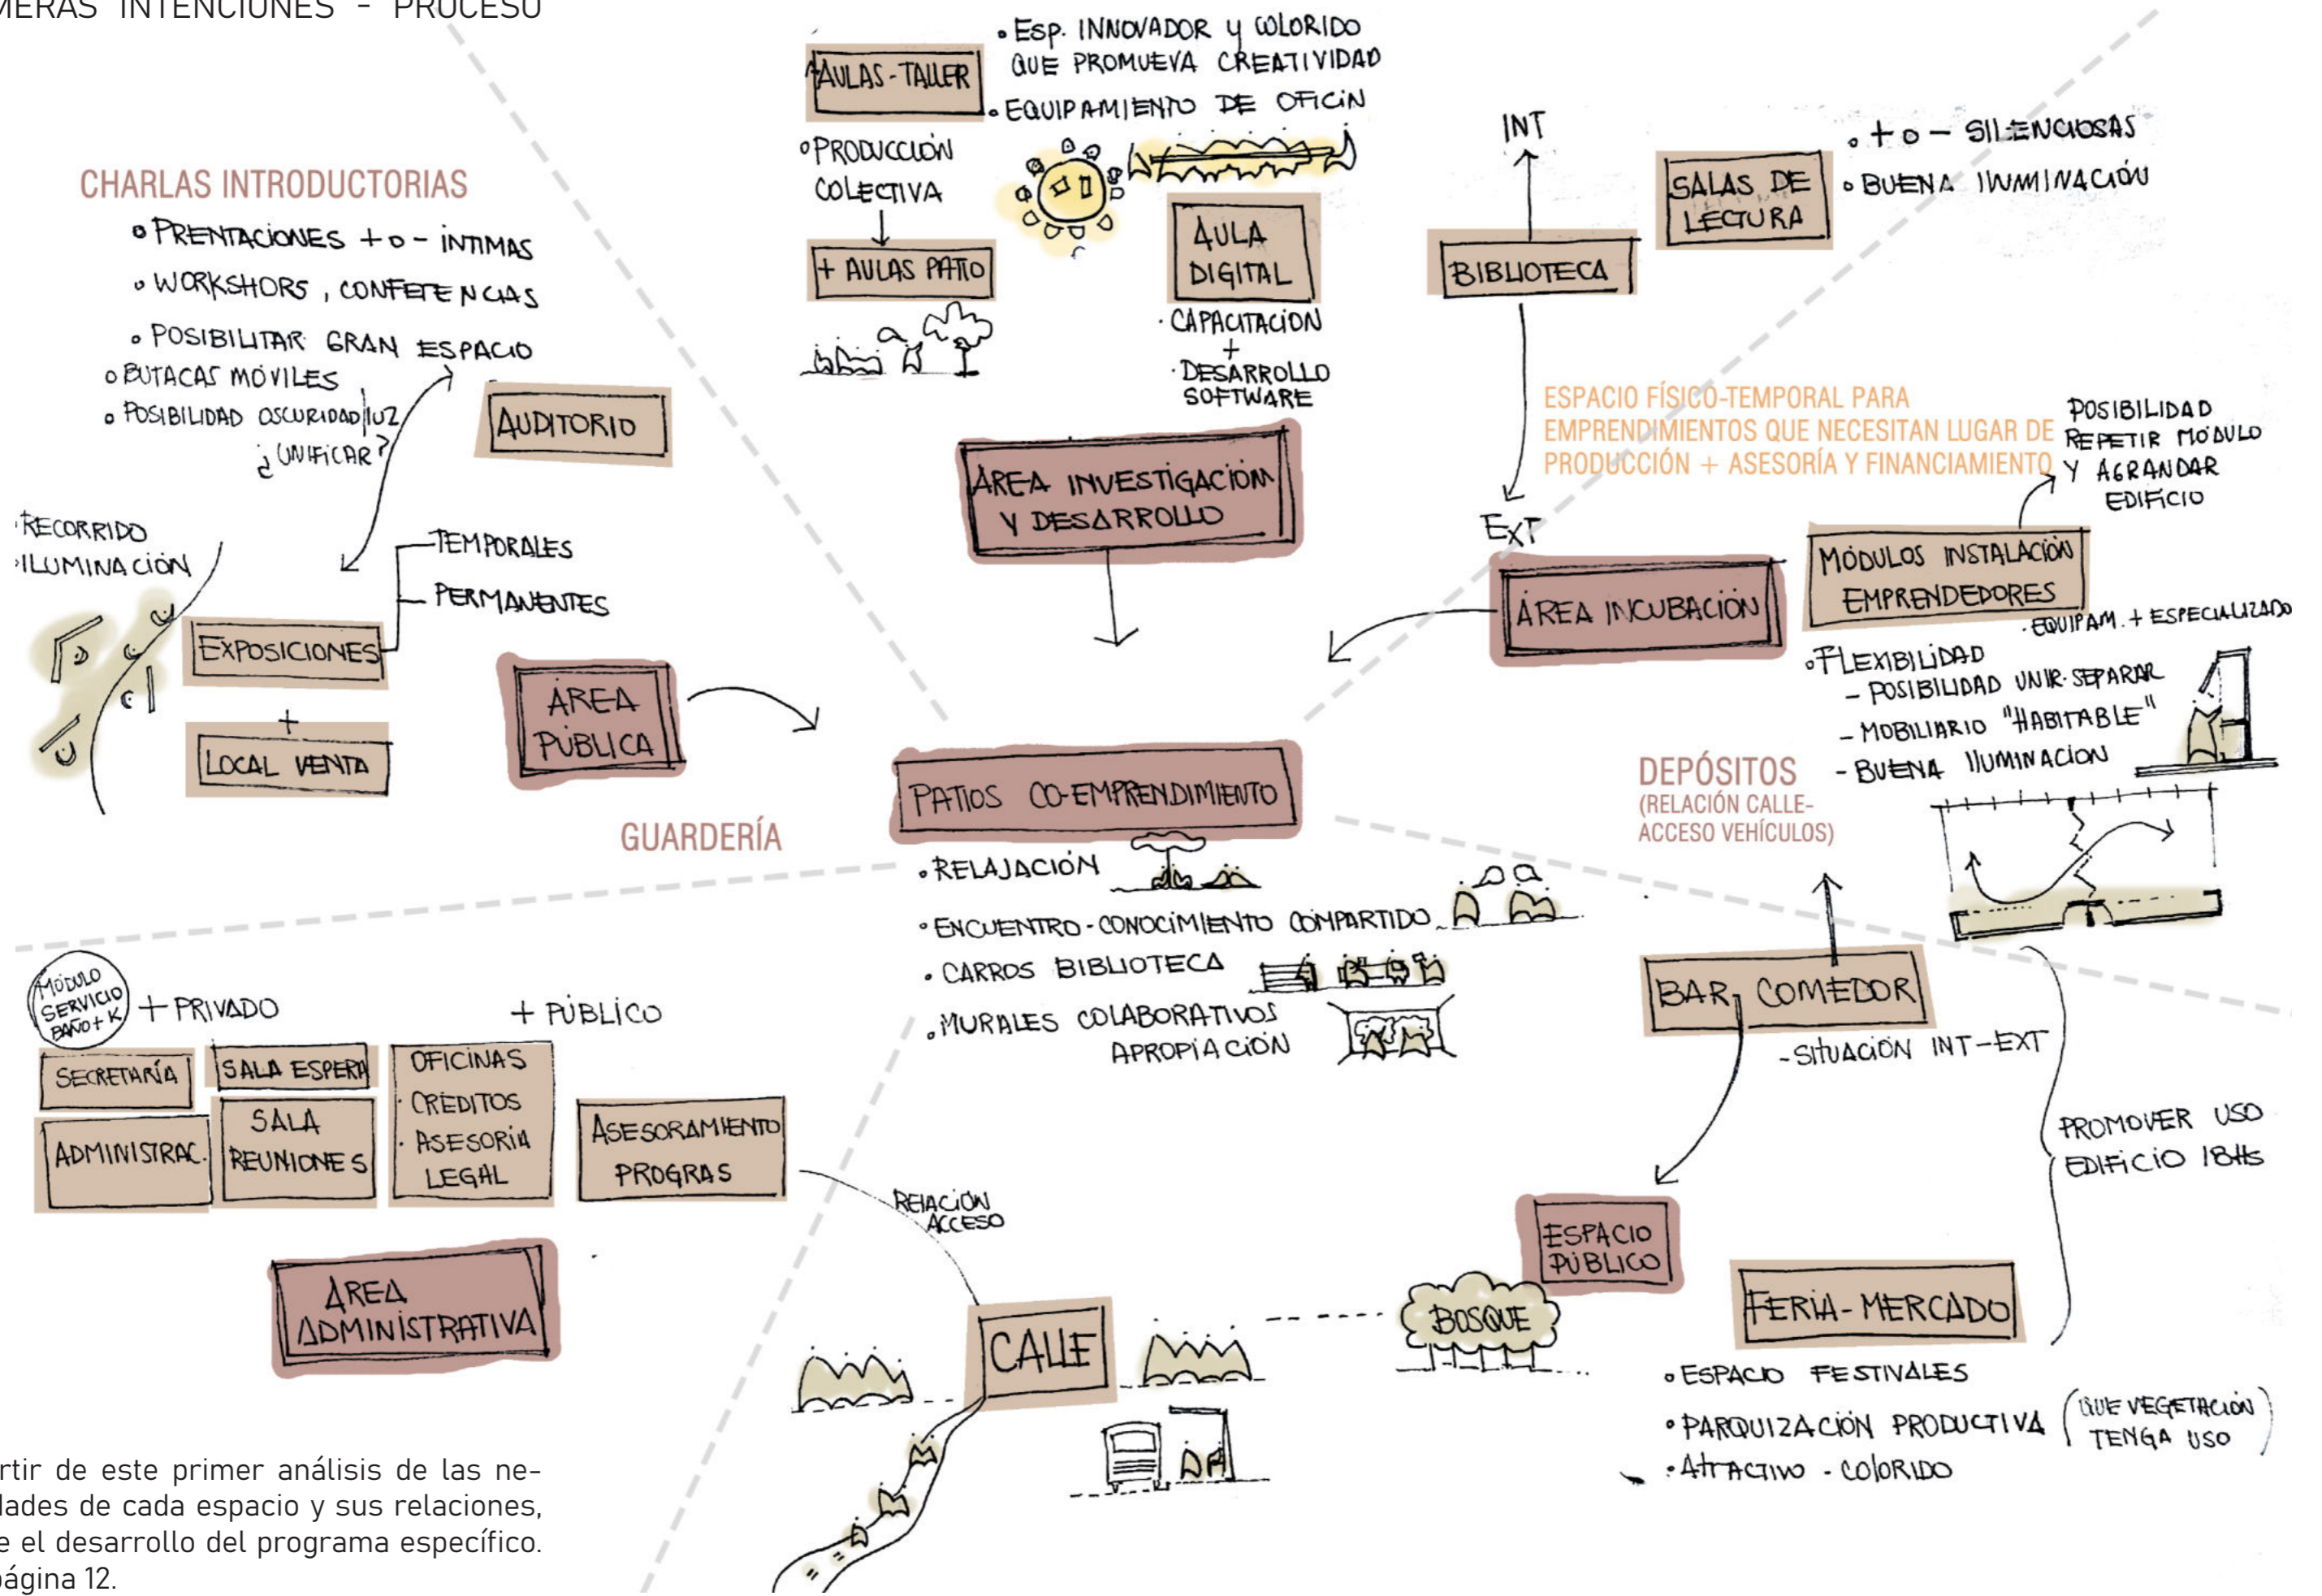 MERAS INTENCIONES - PROCESO
CHARLAS INTRODUCTORIAS
• PRENTACIONES + o - INTIMAS
• WORKSHORS, CONFERENCIAS
• POSIBILITAR GRAN ESPACIO
• BUTACAS MÓVILES
• POSIBILIDAD OSCURIDAD/LUZ
¿UNIFICAR?
AUDITORIO
· RECORRIDO
· ILUMINACIÓN
TEMPORALES
PERMANENTES
EXPOSICIONES
+
LOCAL VENTA
ÁREA
PÚBLICA
GUARDERÍA
AULAS-TALLER
• ESP. INNOVADOR Y COLORIDO
QUE PROMUEVA CREATIVIDAD
• EQUIPAMIENTO DE OFICIN
• PRODUCCIÓN
COLECTIVA
+ AULAS PATIO
AULA
DIGITAL
· CAPACITACION
+
· DESARROLLO
SOFTWARE
ÁREA INVESTIGACIÓN
Y DESARROLLO
INT
BIBLIOTECA
EXT
SALAS DE
LECTURA
• + o - SILENCIOSAS
• BUENA ILUMINACIÓN
ESPACIO FÍSICO-TEMPORAL PARA
EMPRENDIMIENTOS QUE NECESITAN LUGAR DE
PRODUCCIÓN + ASESORÍA Y FINANCIAMIENTO
POSIBILIDAD
REPETIR MÓDULO
Y AGRANDAR
EDIFICIO
ÁREA INCUBACIÓN
MÓDULOS INSTALACIÓN
EMPRENDEDORES
· EQUIPAM. + ESPECIALIZADO
• FLEXIBILIDAD
- POSIBILIDAD UNIR-SEPARAR
- MOBILIARIO "HABITABLE"
- BUENA ILUMINACION
DEPÓSITOS
(RELACIÓN CALLE-
ACCESO VEHÍCULOS)
PATIOS CO-EMPRENDIMIENTO
• RELAJACIÓN
• ENCUENTRO-CONOCIMIENTO COMPARTIDO
• CARROS BIBLIOTECA
• MURALES COLABORATIVOS
APROPIACIÓN
MÓDULO
SERVICIO
BAÑO+K
+ PRIVADO
+ PÚBLICO
SECRETARÍA
SALA ESPERA
OFICINAS
· CRÉDITOS
· ASESORÍA
LEGAL
ADMINISTRAC.
SALA
REUNIONES
ASESORAMIENTO
PROGRAS
ÁREA
ADMINISTRATIVA
RELACIÓN
ACCESO
CALLE
BOSQUE
BAR, COMEDOR
- SITUACIÓN INT-EXT
PROMOVER USO
EDIFICIO 18Hs
ESPACIO
PÚBLICO
FERIA-MERCADO
• ESPACIO FESTIVALES
• PARQUIZACIÓN PRODUCTIVA (QUE VEGETACIÓN
TENGA USO)
• ATRACTIVO - COLORIDO
rtir de este primer análisis de las ne-
dades de cada espacio y sus relaciones,
e el desarrollo del programa específico.
página 12.